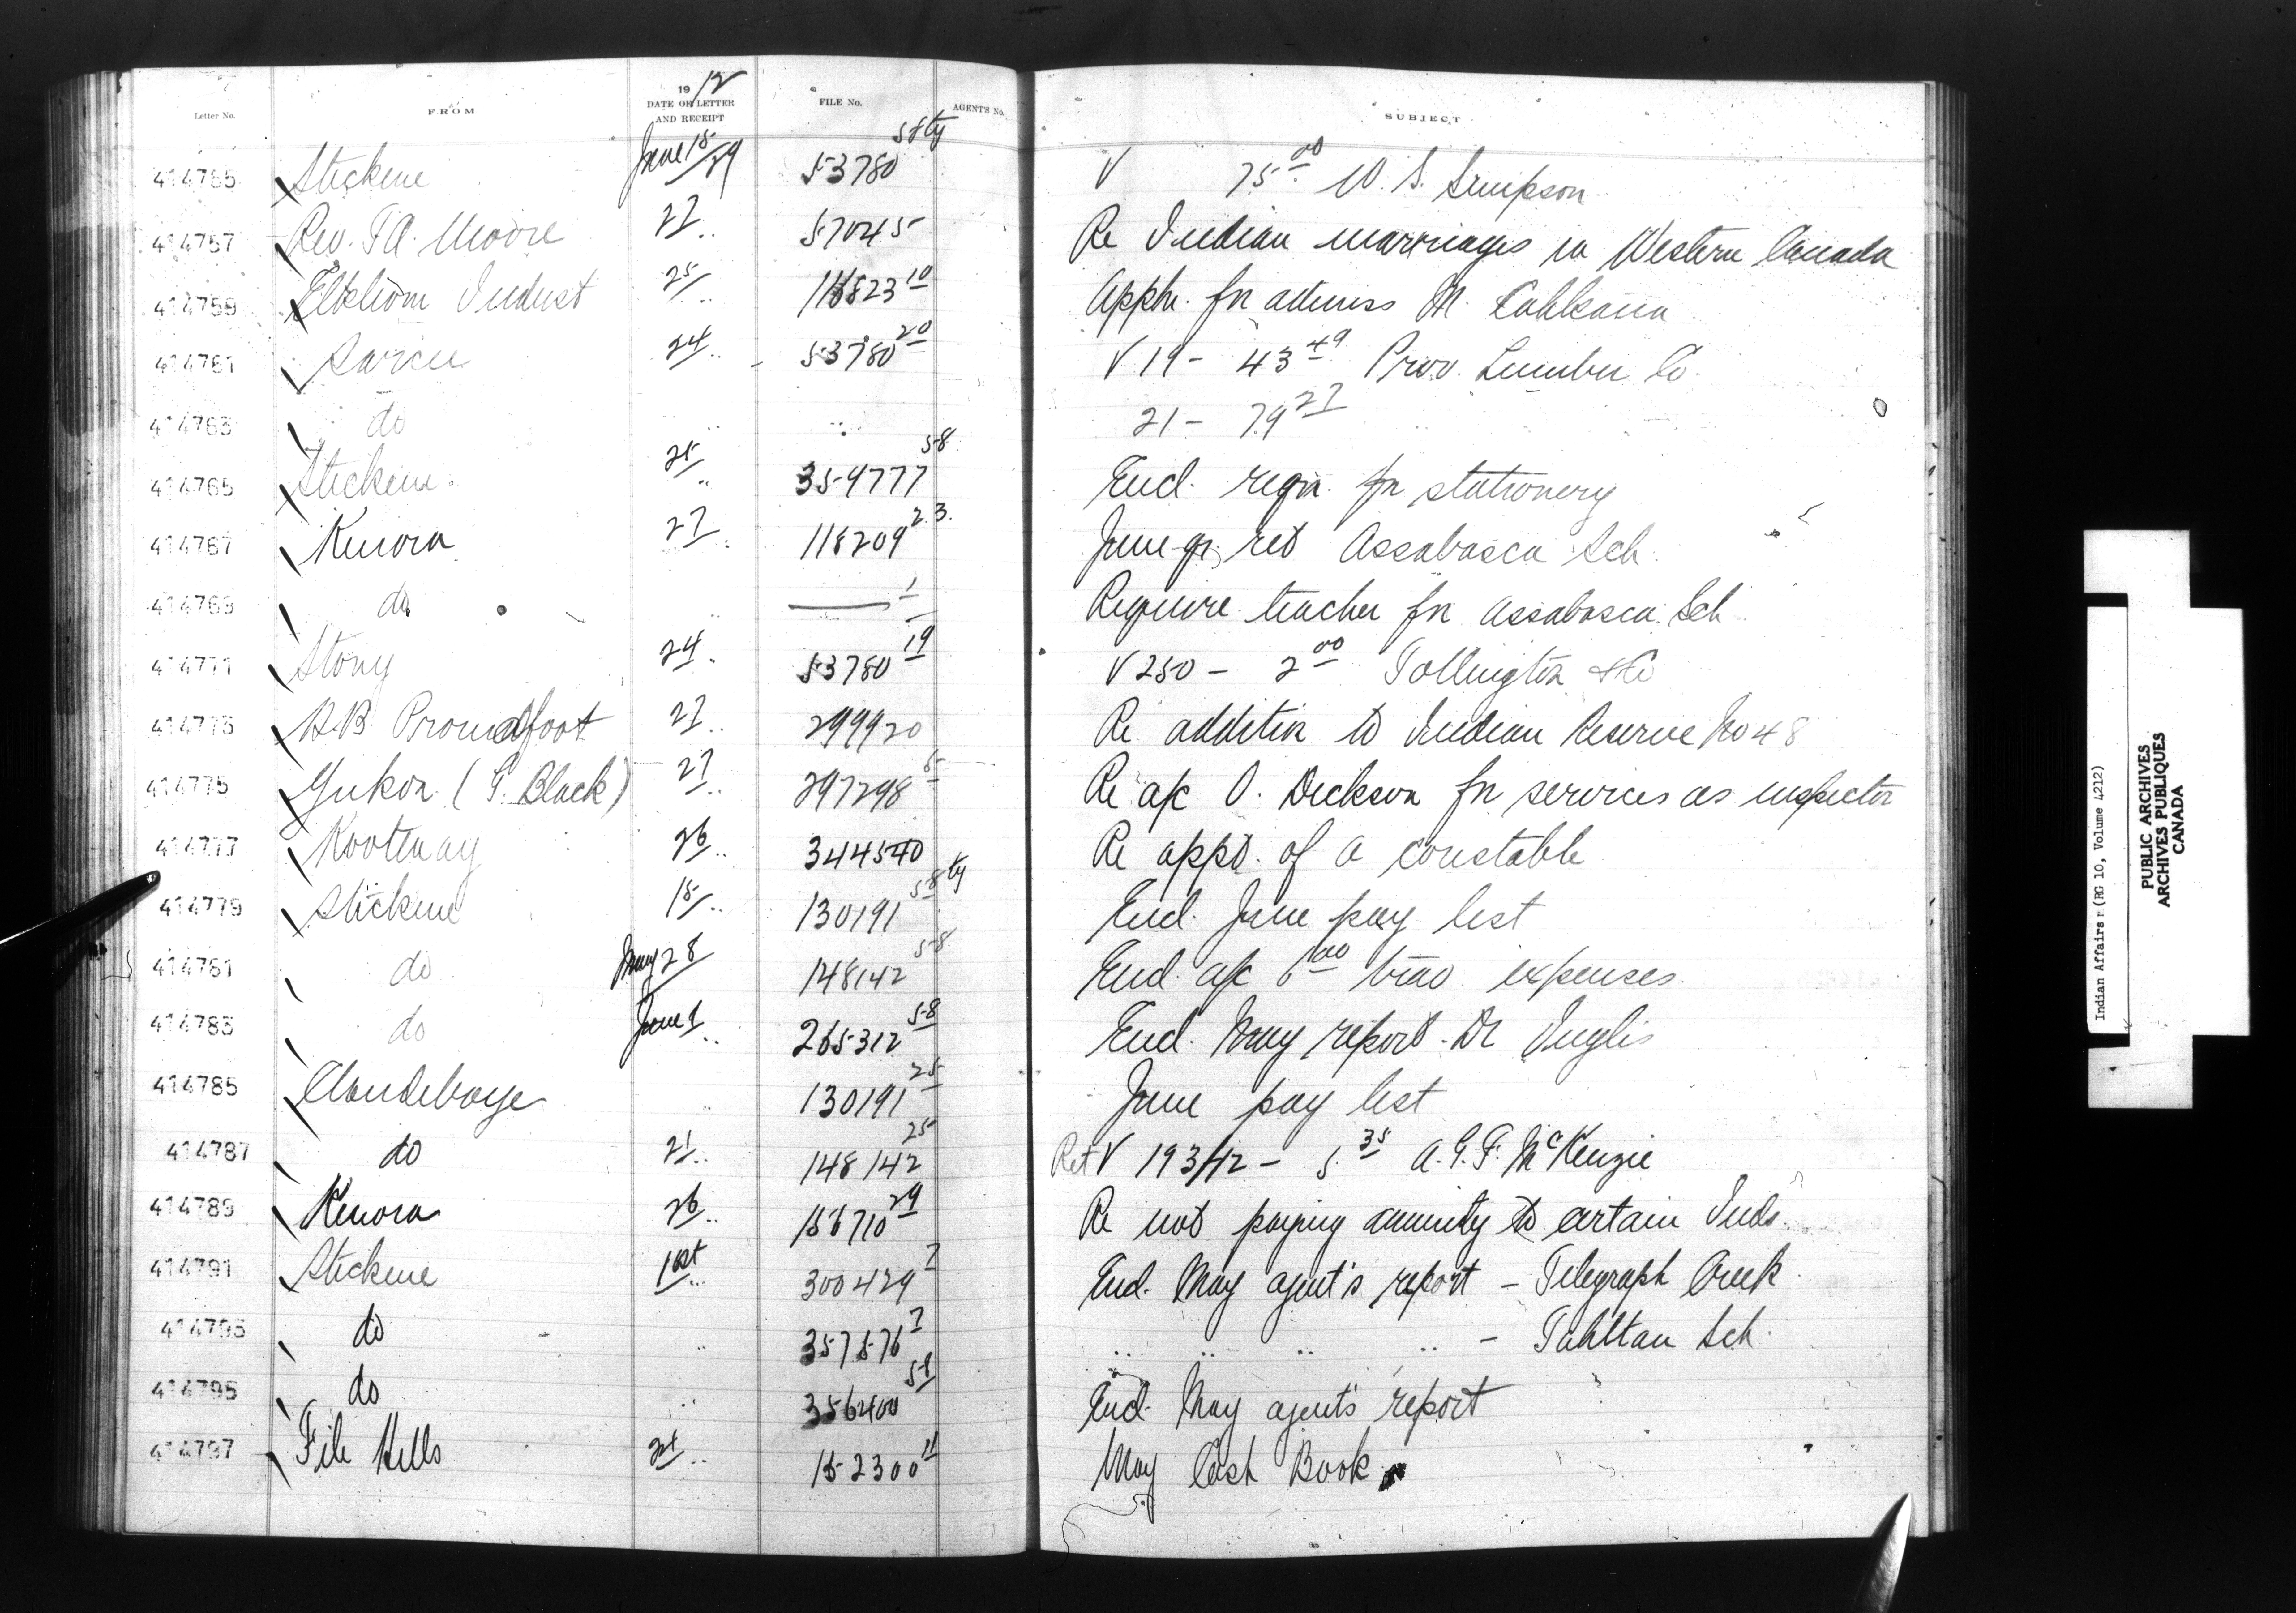 Letter No. FROM 1912 DATE OF LETTER AND RECEIPT FILE No. AGENT'S No. SUBJECT
414755 Stickene June 15/29 53780 58 ty V 75.00 W. S. Simpson
414757 Rev. T.A. Moore 27 57045 Re Indian marriages in Western Canada
414759 Elkhorn Indust 25 116823 10 Appln. for admiss M.
414761 Sarcee 24 53780 20 V 19 - 43 49 Prov. Lumber Co.
414763 do 21 - 79 27
414765 Stickene 25 359777 58 Encl. reqn. for stationery
414767 Kenora 27 118209 23 June qr. ret Assabasca Sch.
414769 do 1 Require teacher for Assabasca Sch
414771 Stony 24 53780 19 V 250 - 2 00 Tollington & Co
414773 H.B. Proudfoot 27 299920 Re addition to Indian Reserve No 48
414775 Yukon (G. Black) 27 297298 5 Re a/c O. Dickson for services as inspector
414777 Kootenay 26 344540 Re appt. of a constable
414779 Stickene 15 130191 58 ty Encl. June pay list
414781 do May 28 148142 58 Encl. a/c 6 00 trav. expenses
414783 do June 1 265312 58 Encl. May report - Dr Inglis
414785 Clandeboye 130191 25 June pay list
414787 do 21 148142 25 Ret V 193/12 - 5.35 A.G.F. McKenzie
414789 Kenora 26 156710 29 Re not paying annuity to certain Inds.
414791 Stickene 1st 300429 7 Encl. May agent's report - Telegraph Creek
414793 do 357576 7 " " " " - Tahltan Sch.
414795 do 356400 58 Encl. May agent's report
414797 File Hills 24 152300 11 May Cash Book
Indian Affairs (RG 10, Volume 4212)
PUBLIC ARCHIVES
ARCHIVES PUBLIQUES
CANADA